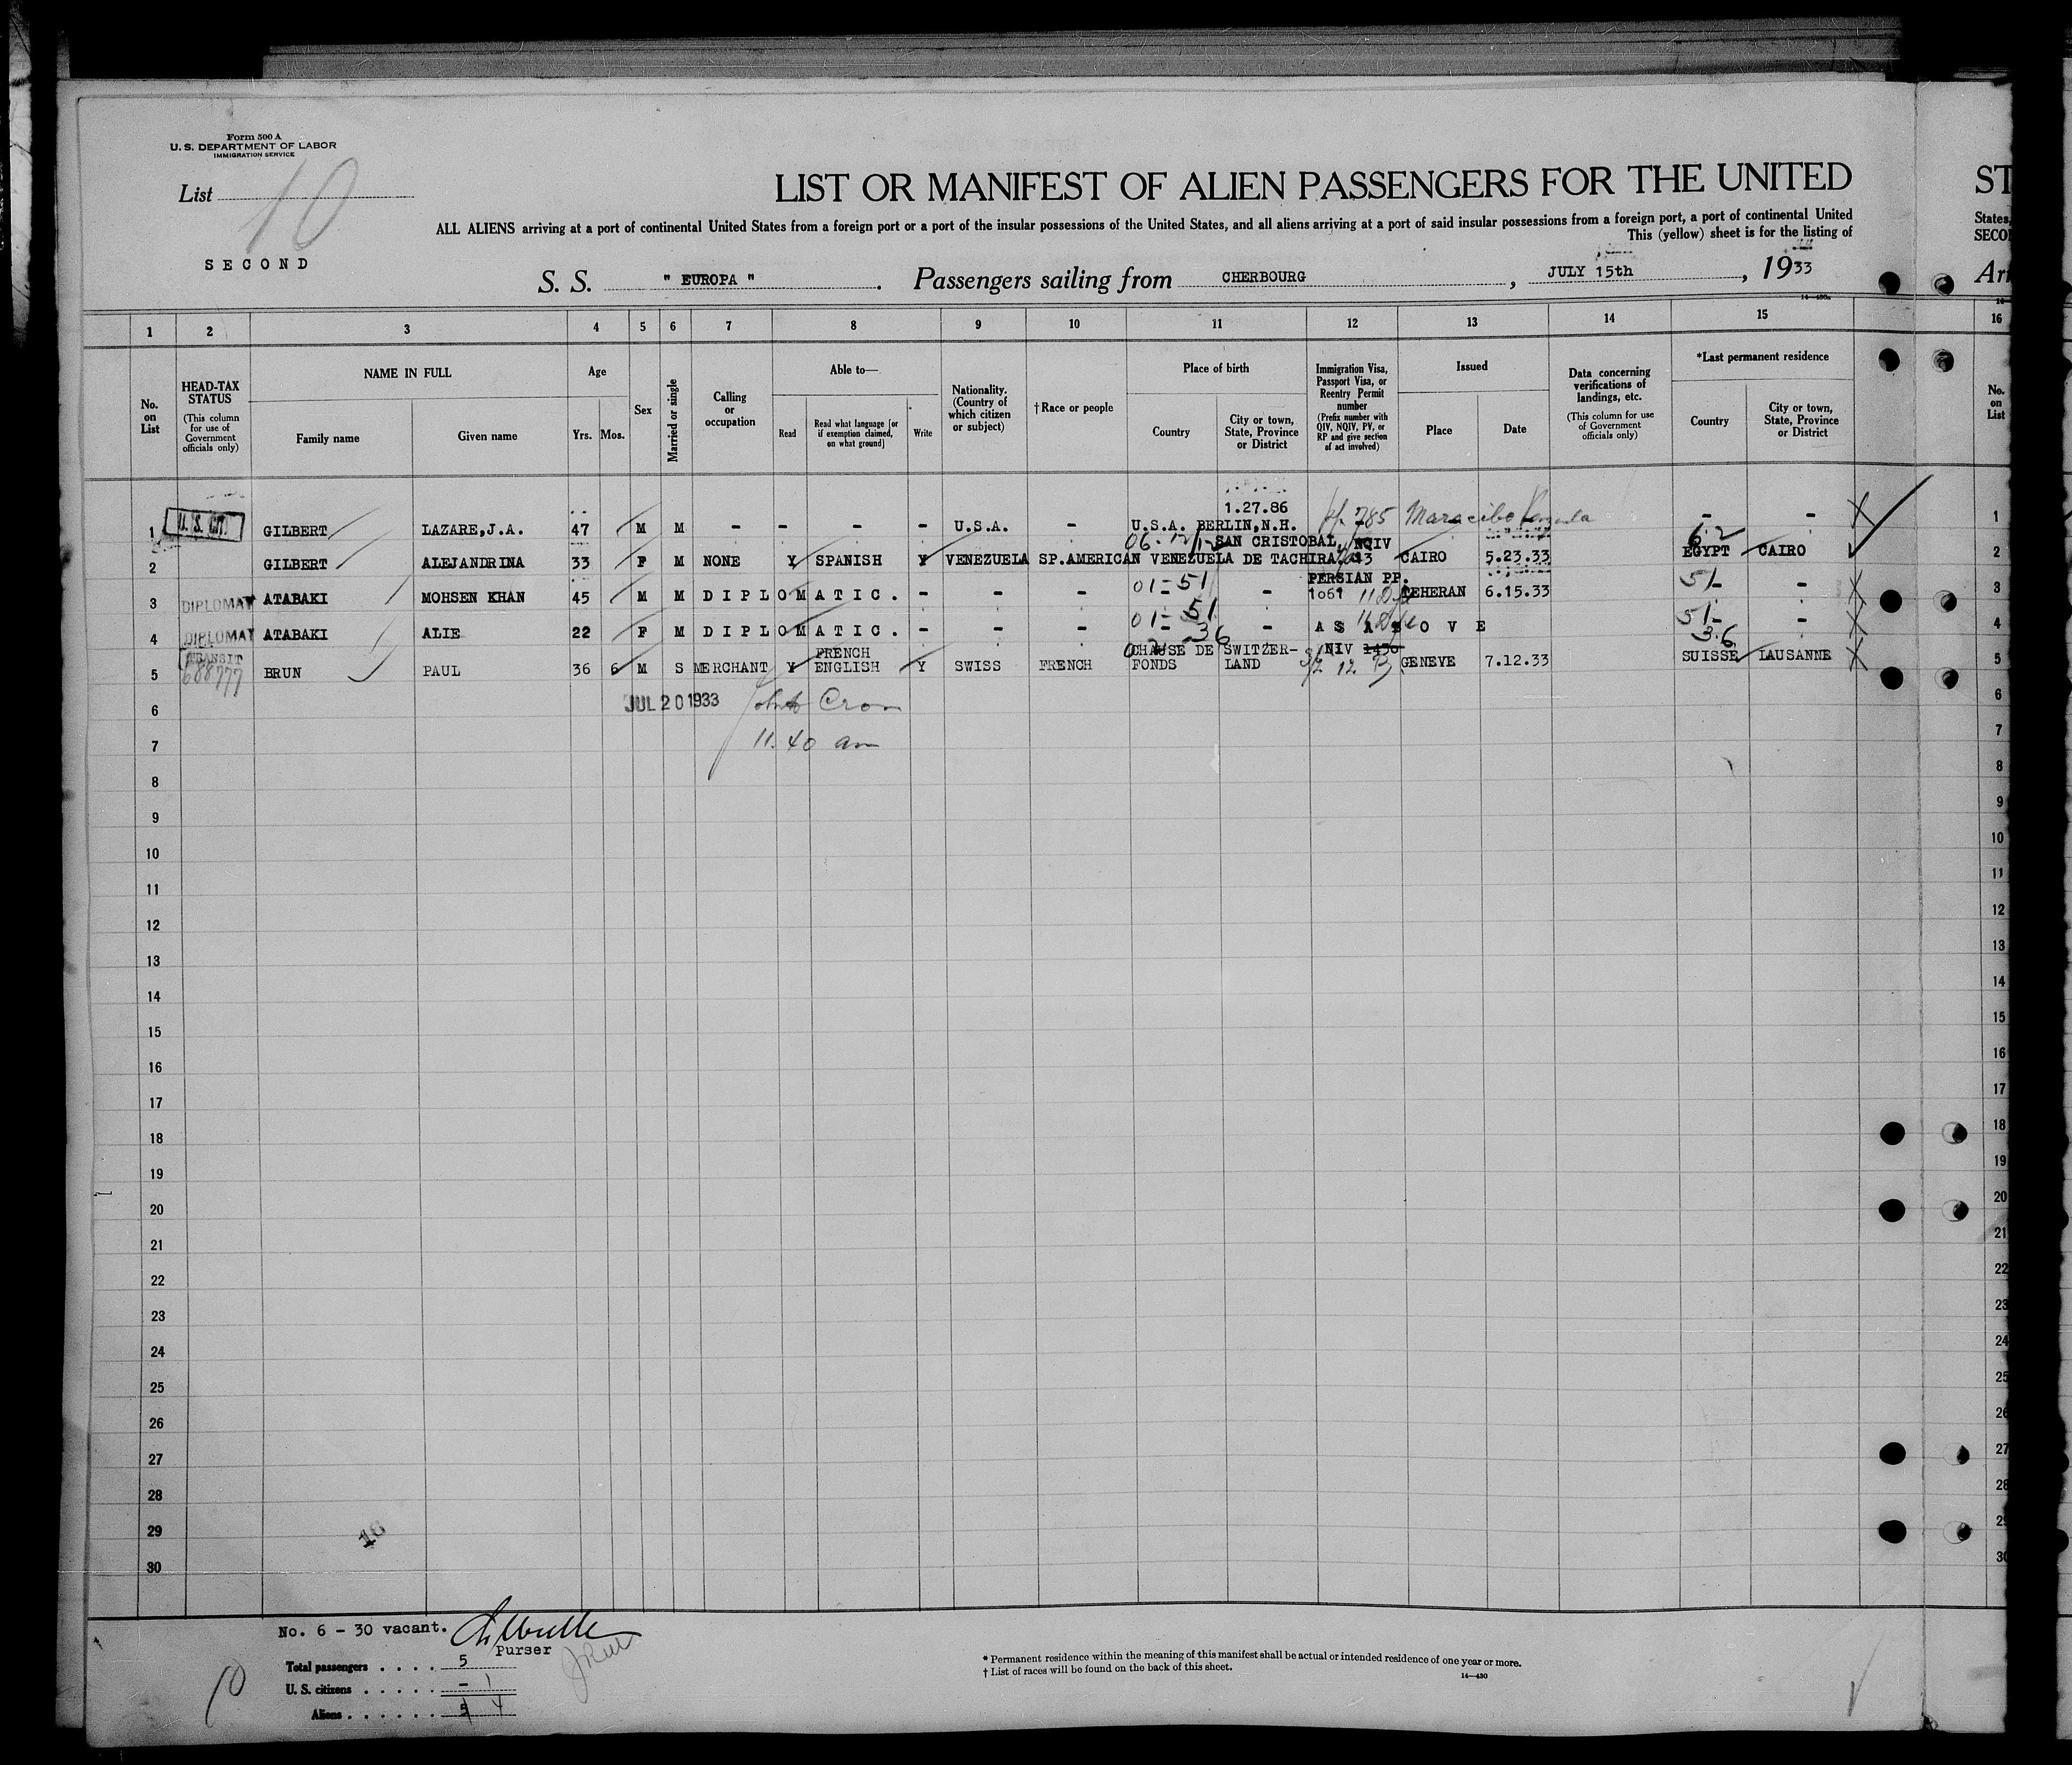 Form 500 A
U. S. DEPARTMENT OF LABOR
IMMIGRATION SERVICE
List 10
SECOND
LIST OR MANIFEST OF ALIEN PASSENGERS FOR THE UNITED
ST
ALL ALIENS arriving at a port of continental United States from a foreign port or a port of the insular possessions of the United States, and all aliens arriving at a port of said insular possessions from a foreign port, a port of continental United
States,
This (yellow) sheet is for the listing of
S. S. " EUROPA " . Passengers sailing from CHERBOURG , JULY 15th , 1933
1 2 3 4 5 6 7 8 9 10 11 12 13 14 15 16
No. on List
HEAD-TAX STATUS
(This column for use of Government officials only)
NAME IN FULL
Family name
Given name
Age
Yrs. Mos.
Sex
Married or single
Calling or occupation
Able to—
Read
Read what language [or if exemption claimed, on what ground]
Write
Nationality. (Country of which citizen or subject)
† Race or people
Place of birth
Country
City or town, State, Province or District
Immigration Visa, Passport Visa, or Reentry Permit number
(Prefix number with QIV, NQIV, PV, or RP and give section of act involved)
Issued
Place
Date
Data concerning verifications of landings, etc.
(This column for use of Government officials only)
*Last permanent residence
Country
City or town, State, Province or District
No. on List
1.27.86
1 U. S. CIT. GILBERT LAZARE,J.A. 47 M M - - - U.S.A. - U.S.A. BERLIN,N.H. 785 Maracibo - - 1
SAN CRISTOBAL, NQIV 62
2 GILBERT ALEJANDRINA 33 F M NONE Y SPANISH Y VENEZUELA SP.AMERICAN VENEZUELA DE TACHIRA CAIRO 5.23.33 EGYPT CAIRO 2
01-51 PERSIAN PP. 51-
3 DIPLOMAT ATABAKI MOHSEN KHAN 45 M M DIPLOMATIC. - - - - 1061 TEHERAN 6.15.33 - 3
01-51 51-
4 DIPLOMAT ATABAKI ALIE 22 F M DIPLOMATIC. - - - - - AS ABOVE - 4
TRANSIT FRENCH 36 CHAUSE DE SWITZER- NIV 1430 36
5 688777 BRUN PAUL 36 6 M S MERCHANT Y ENGLISH Y SWISS FRENCH FONDS LAND GENEVE 7.12.33 SUISSE LAUSANNE 5
6 JUL 20 1933 6
7 11.40 am 7
8 8
9 9
10 10
11 11
12 12
13 13
14 14
15 15
16 16
17 17
18 18
19 19
20 20
21 21
22 22
23 23
24 24
25 25
26 26
27 27
28 28
29 29
30 30
16
No. 6 - 30 vacant.
Purser
Total passengers . . . . 5
U. S. citizens . . . . . - 1
Aliens . . . . . . 5 4
10
* Permanent residence within the meaning of this manifest shall be actual or intended residence of one year or more.
† List of races will be found on the back of this sheet.
14—430